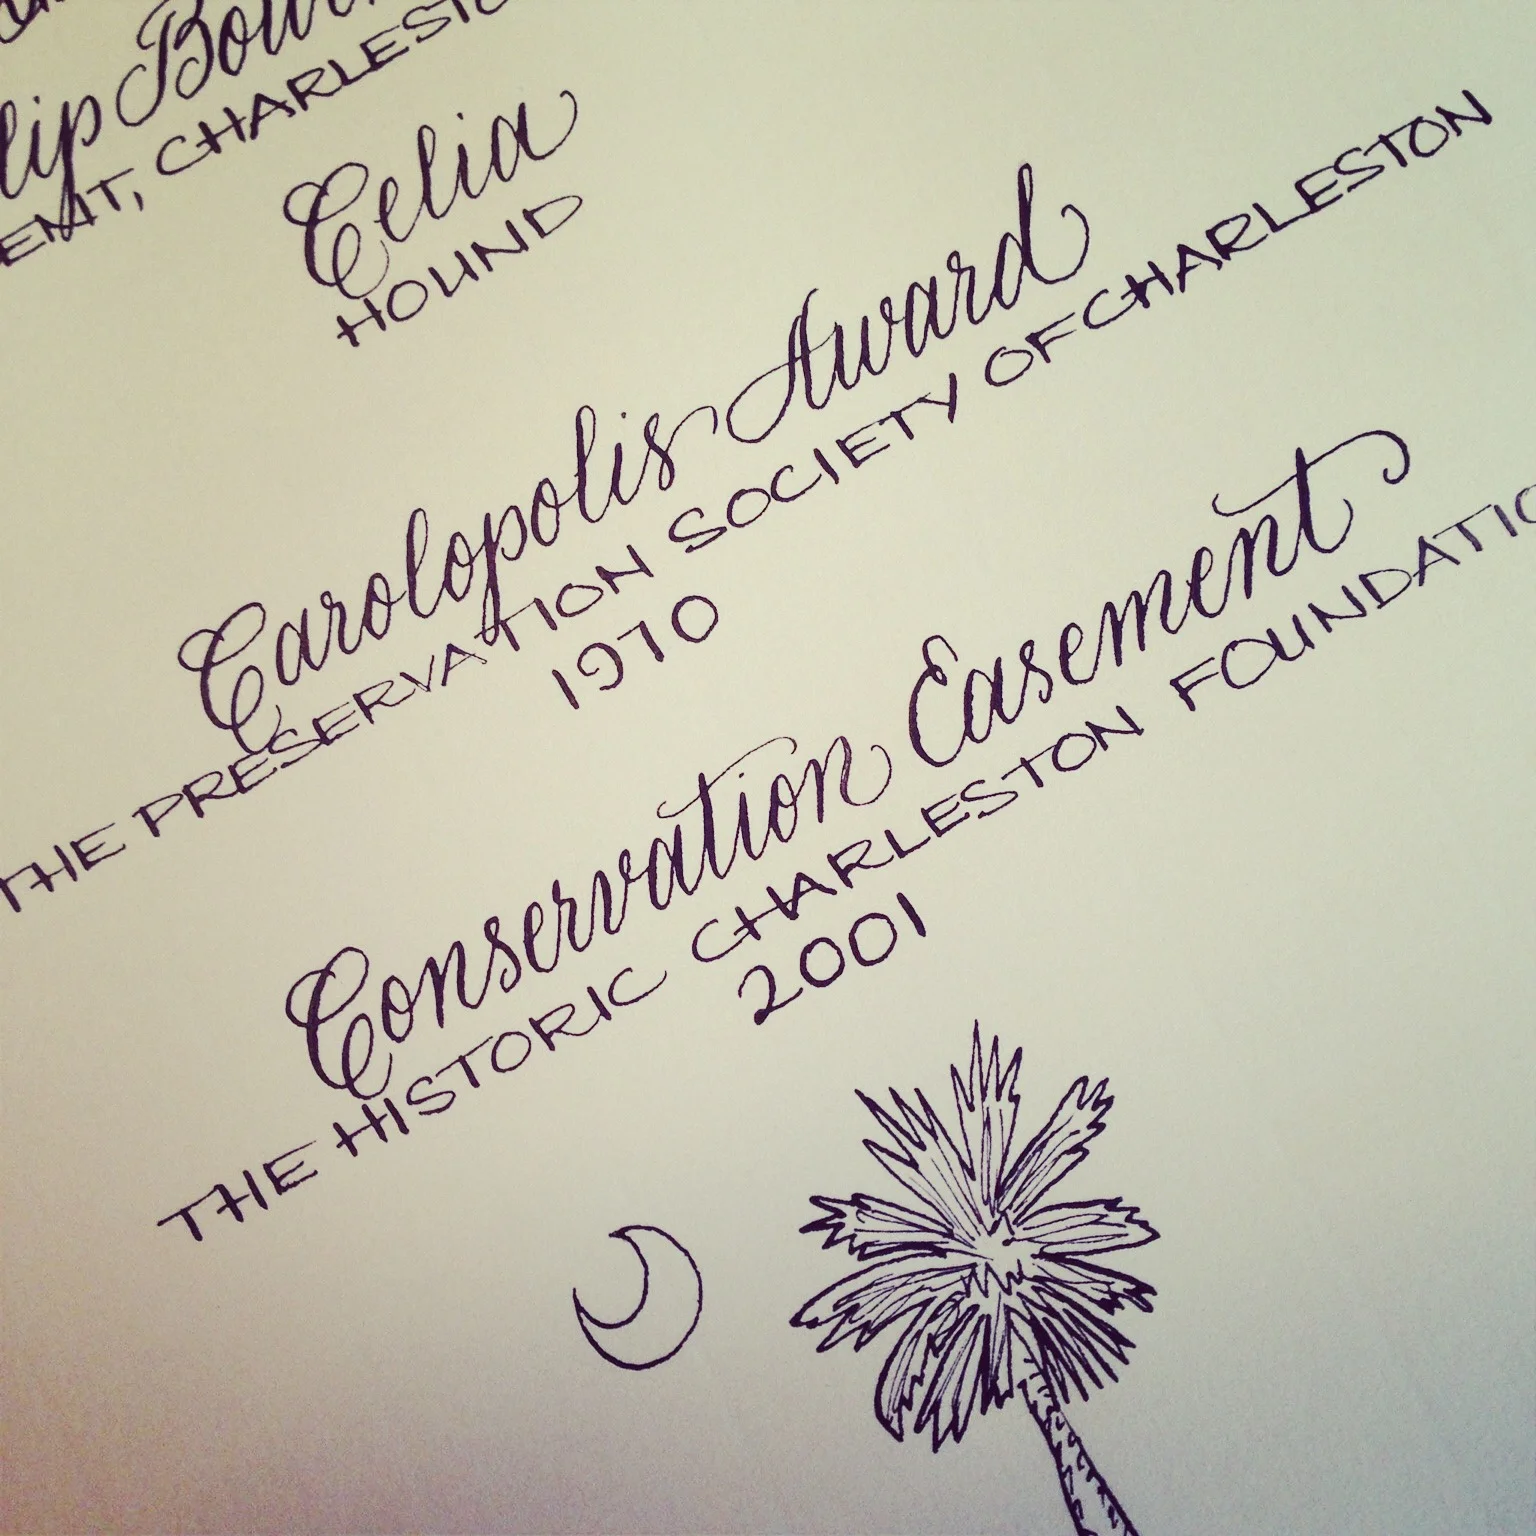 lip Bour
EMT, CHARLESTO
Celia
HOUND
Carolopolis Award
THE PRESERVATION SOCIETY OF CHARLESTON
1970
Conservation Easement
THE HISTORIC CHARLESTON FOUNDATIO
2001